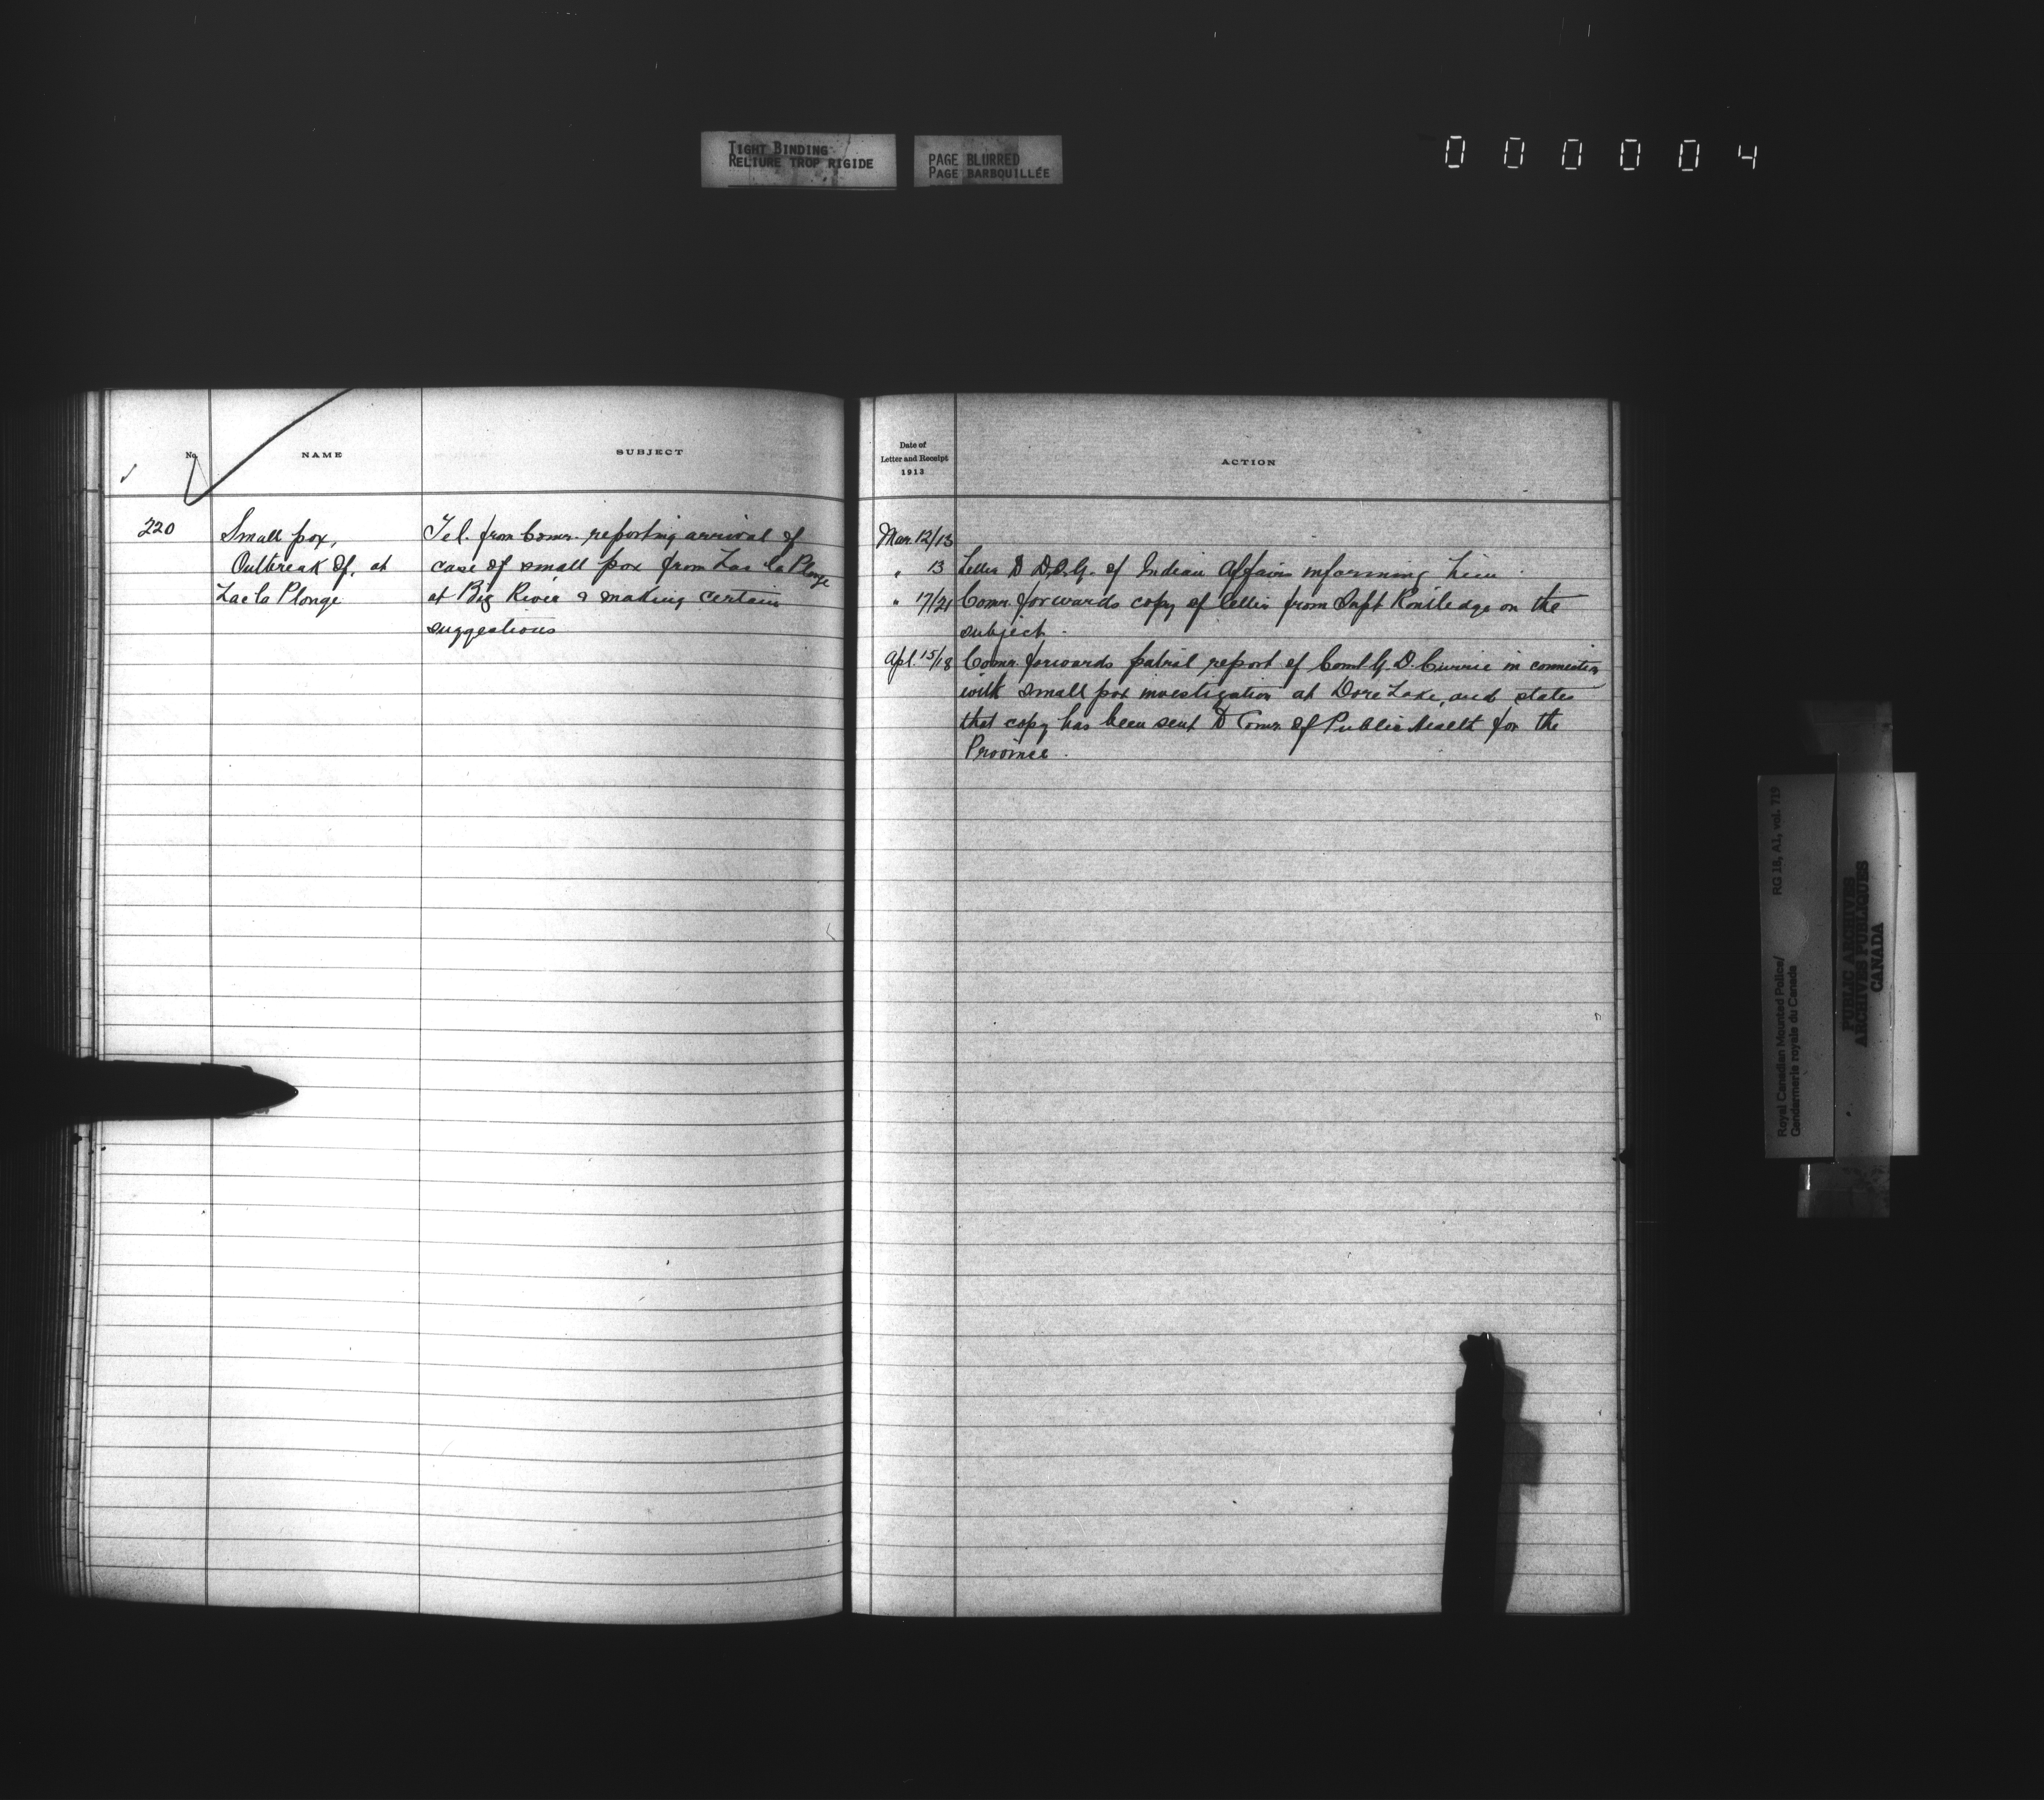 TIGHT BINDING
RELIURE TROP RIGIDE
PAGE BLURRED
PAGE BARBOUILLÉE
000004
No.
NAME
SUBJECT
220
Small pox,
Outbreak of, at
Lac la Plonge
Tel. from Comr. reporting arrival of
case of small pox from Lac la Plonge
at Big River & making certain
suggestions
Date of
Letter and Receipt
1913
ACTION
Mar. 12/13
" 13 Letter to D.S.G. of Indian Affairs informing him.
" 17/21 Comr. forwards copy of letter from Supt Routledge on the
subject.
Apl. 15/18 Comr. forwards patrol report of Const G. D. Currie in connection
with small pox investigation at Dore Lake, and states
that copy has been sent to Comr. of Public Health for the
Province.
Royal Canadian Mounted Police/
Gendarmerie royale du Canada
RG 18, A1, vol. 719
PUBLIC ARCHIVES
ARCHIVES PUBLIQUES
CANADA